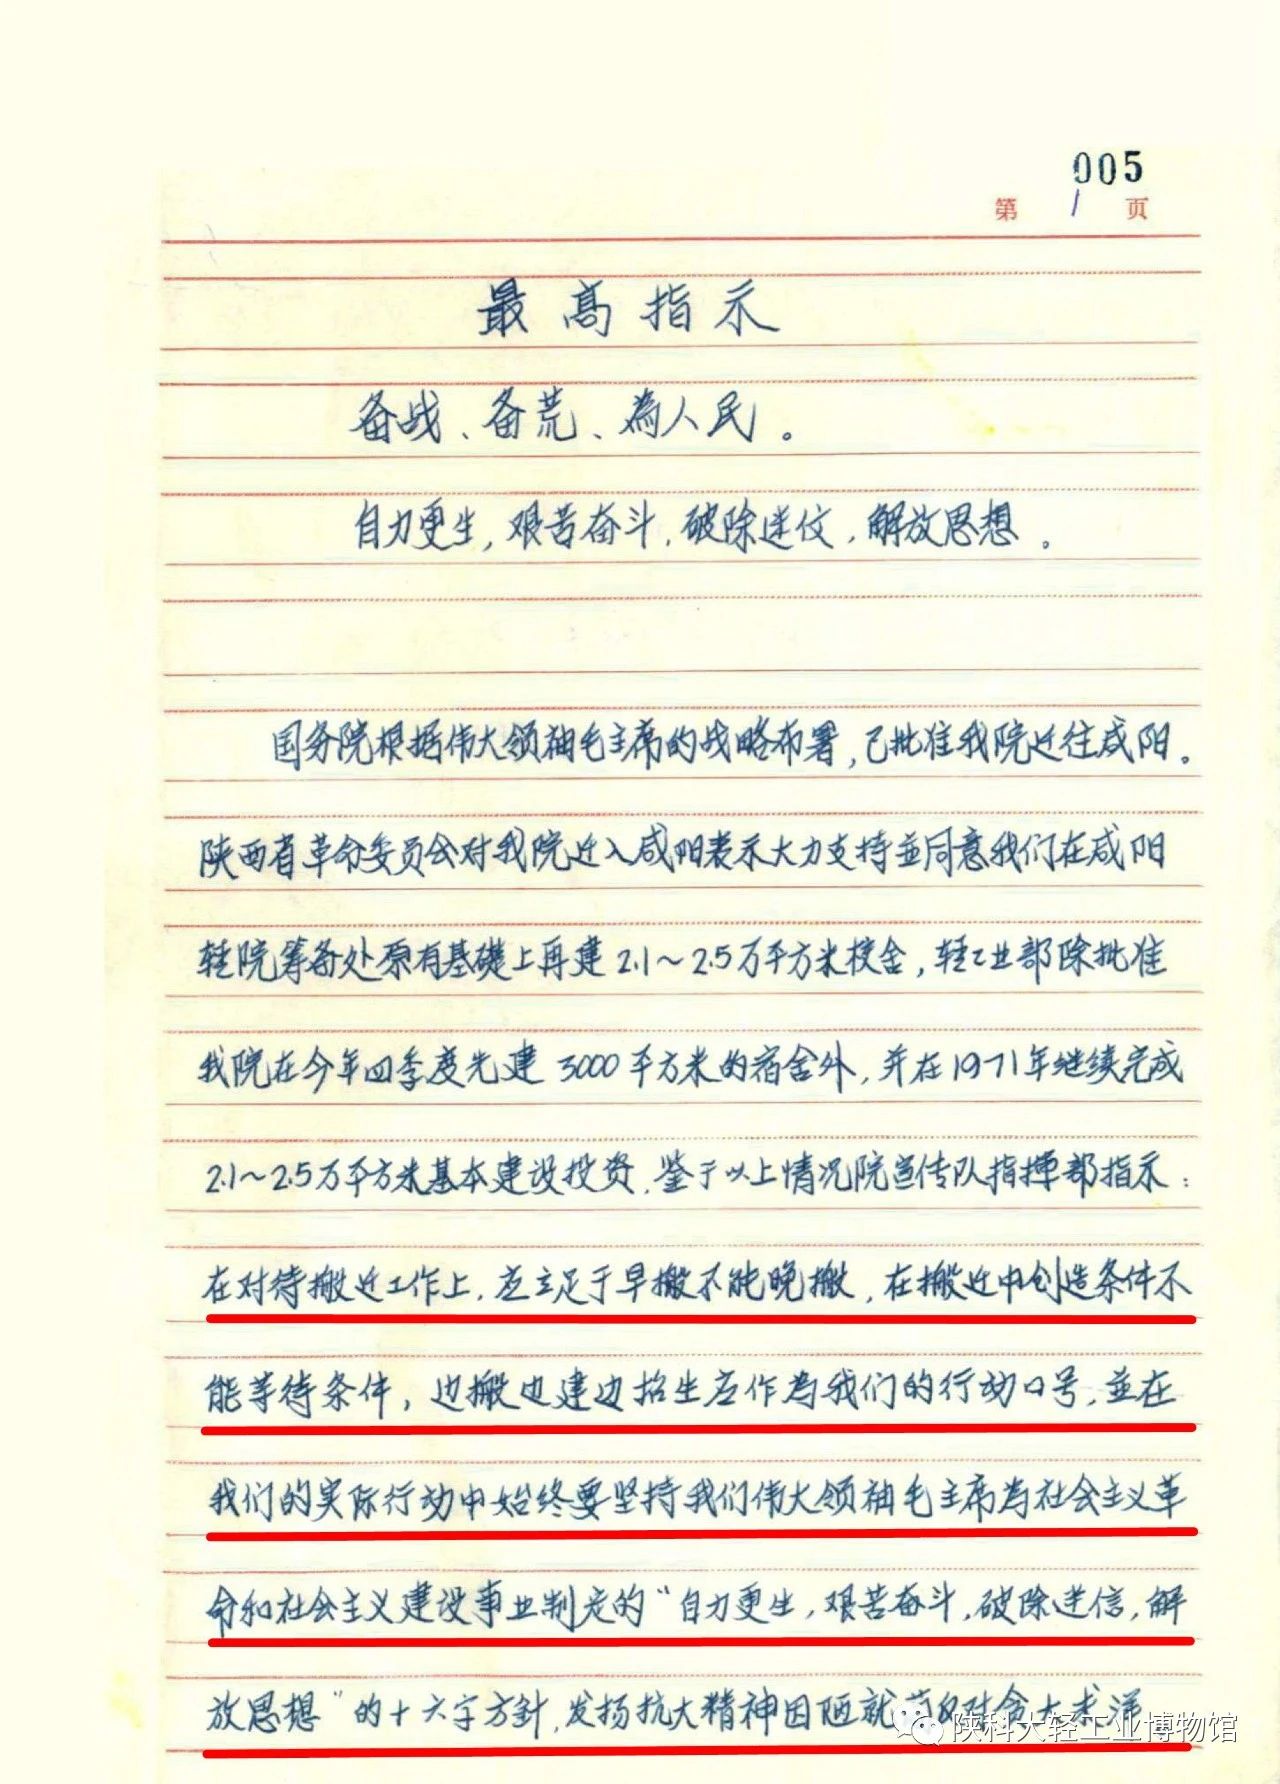 005
第 1 页
最高指示
备战、备荒、為人民。
自力更生,艰苦奋斗,破除迷仗,解放思想。
国务院根据伟大领袖毛主席的战略布署,已批准我院迁往咸阳。
陕西省革命委员会对我院迁入咸阳表示大力支持並同意我们在咸阳
轻院筹备处原有基礎上再建2.1~2.5万平方米校舍,轻工业部除批准
我院在今年四季度先建3000平方米的宿舍外,并在1971年继续完成
2.1~2.5万平方米基本建设投资.鉴于以上情况院宣传队指揮部指示:
在对待搬迁工作上.应立足于早搬不能晚搬,在搬迁中创造条件不
能等待条件,边搬边建边招生应作為我们的行动口号,並在
我们的实际行动中始终要坚持我们伟大领袖毛主席為社会主义革
命和社会主义建设事业制定的"自力更生,艰苦奋斗,破除迷信,解
放思想"的十六字方針,发扬抗大精神因陋就 反对贪大求洋
陕科大轻工业博物馆